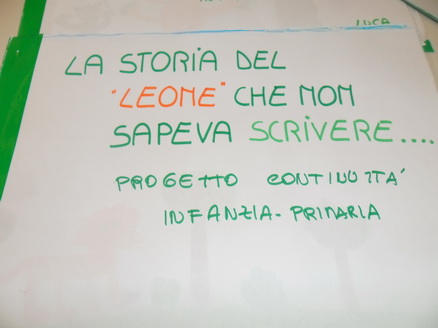 LUCA
LA STORIA DEL
"LEONE" CHE NON
SAPEVA SCRIVERE....
PROGETTO CONTINUITA'
INFANZIA-PRIMARIA